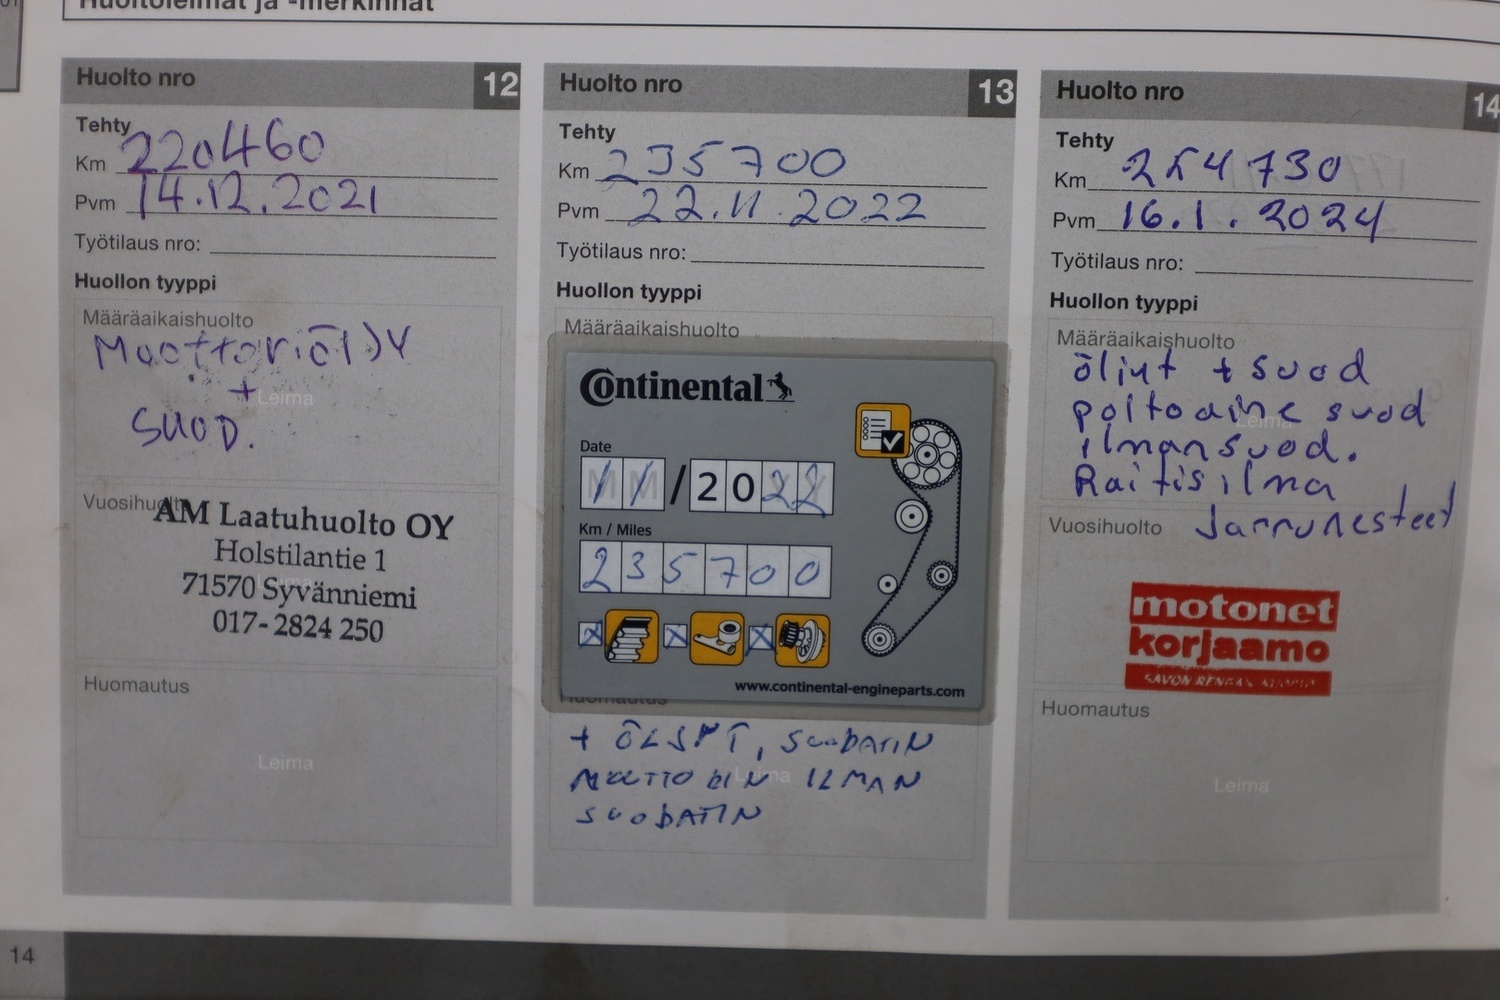 Huoltoleimat ja -merkinnät
Huolto nro 12
Tehty
Km 220460
Pvm 14.12.2021
Työtilaus nro:
Huollon tyyppi
Määräaikaishuolto
Moottoriöljy
+
Leima
SUOD.
Vuosihuolto
AM Laatuhuolto OY
Holstilantie 1
71570 Syvänniemi
017-2824 250
Huomautus
Leima
Huolto nro 13
Tehty
Km 235700
Pvm 22.11.2022
Työtilaus nro:
Huollon tyyppi
Määräaikaishuolto
Continental
Date
11/2022
Km / Miles
235700
www.continental-engineparts.com
Huomautus
+ ÖLJYT, SUODATIN
MOOTTORIN ILMAN
Leima
SUODATIN
Huolto nro 14
Tehty
Km 254730
Pvm 16.1.2024
Työtilaus nro:
Huollon tyyppi
Määräaikaishuolto
öljyt + suod
poltoaine suod
Leima
ilmansuod.
Raitisilma
Vuosihuolto Jarrunesteet
motonet
korjaamo
SAVON RENGAS KUOPIO
Huomautus
Leima
14